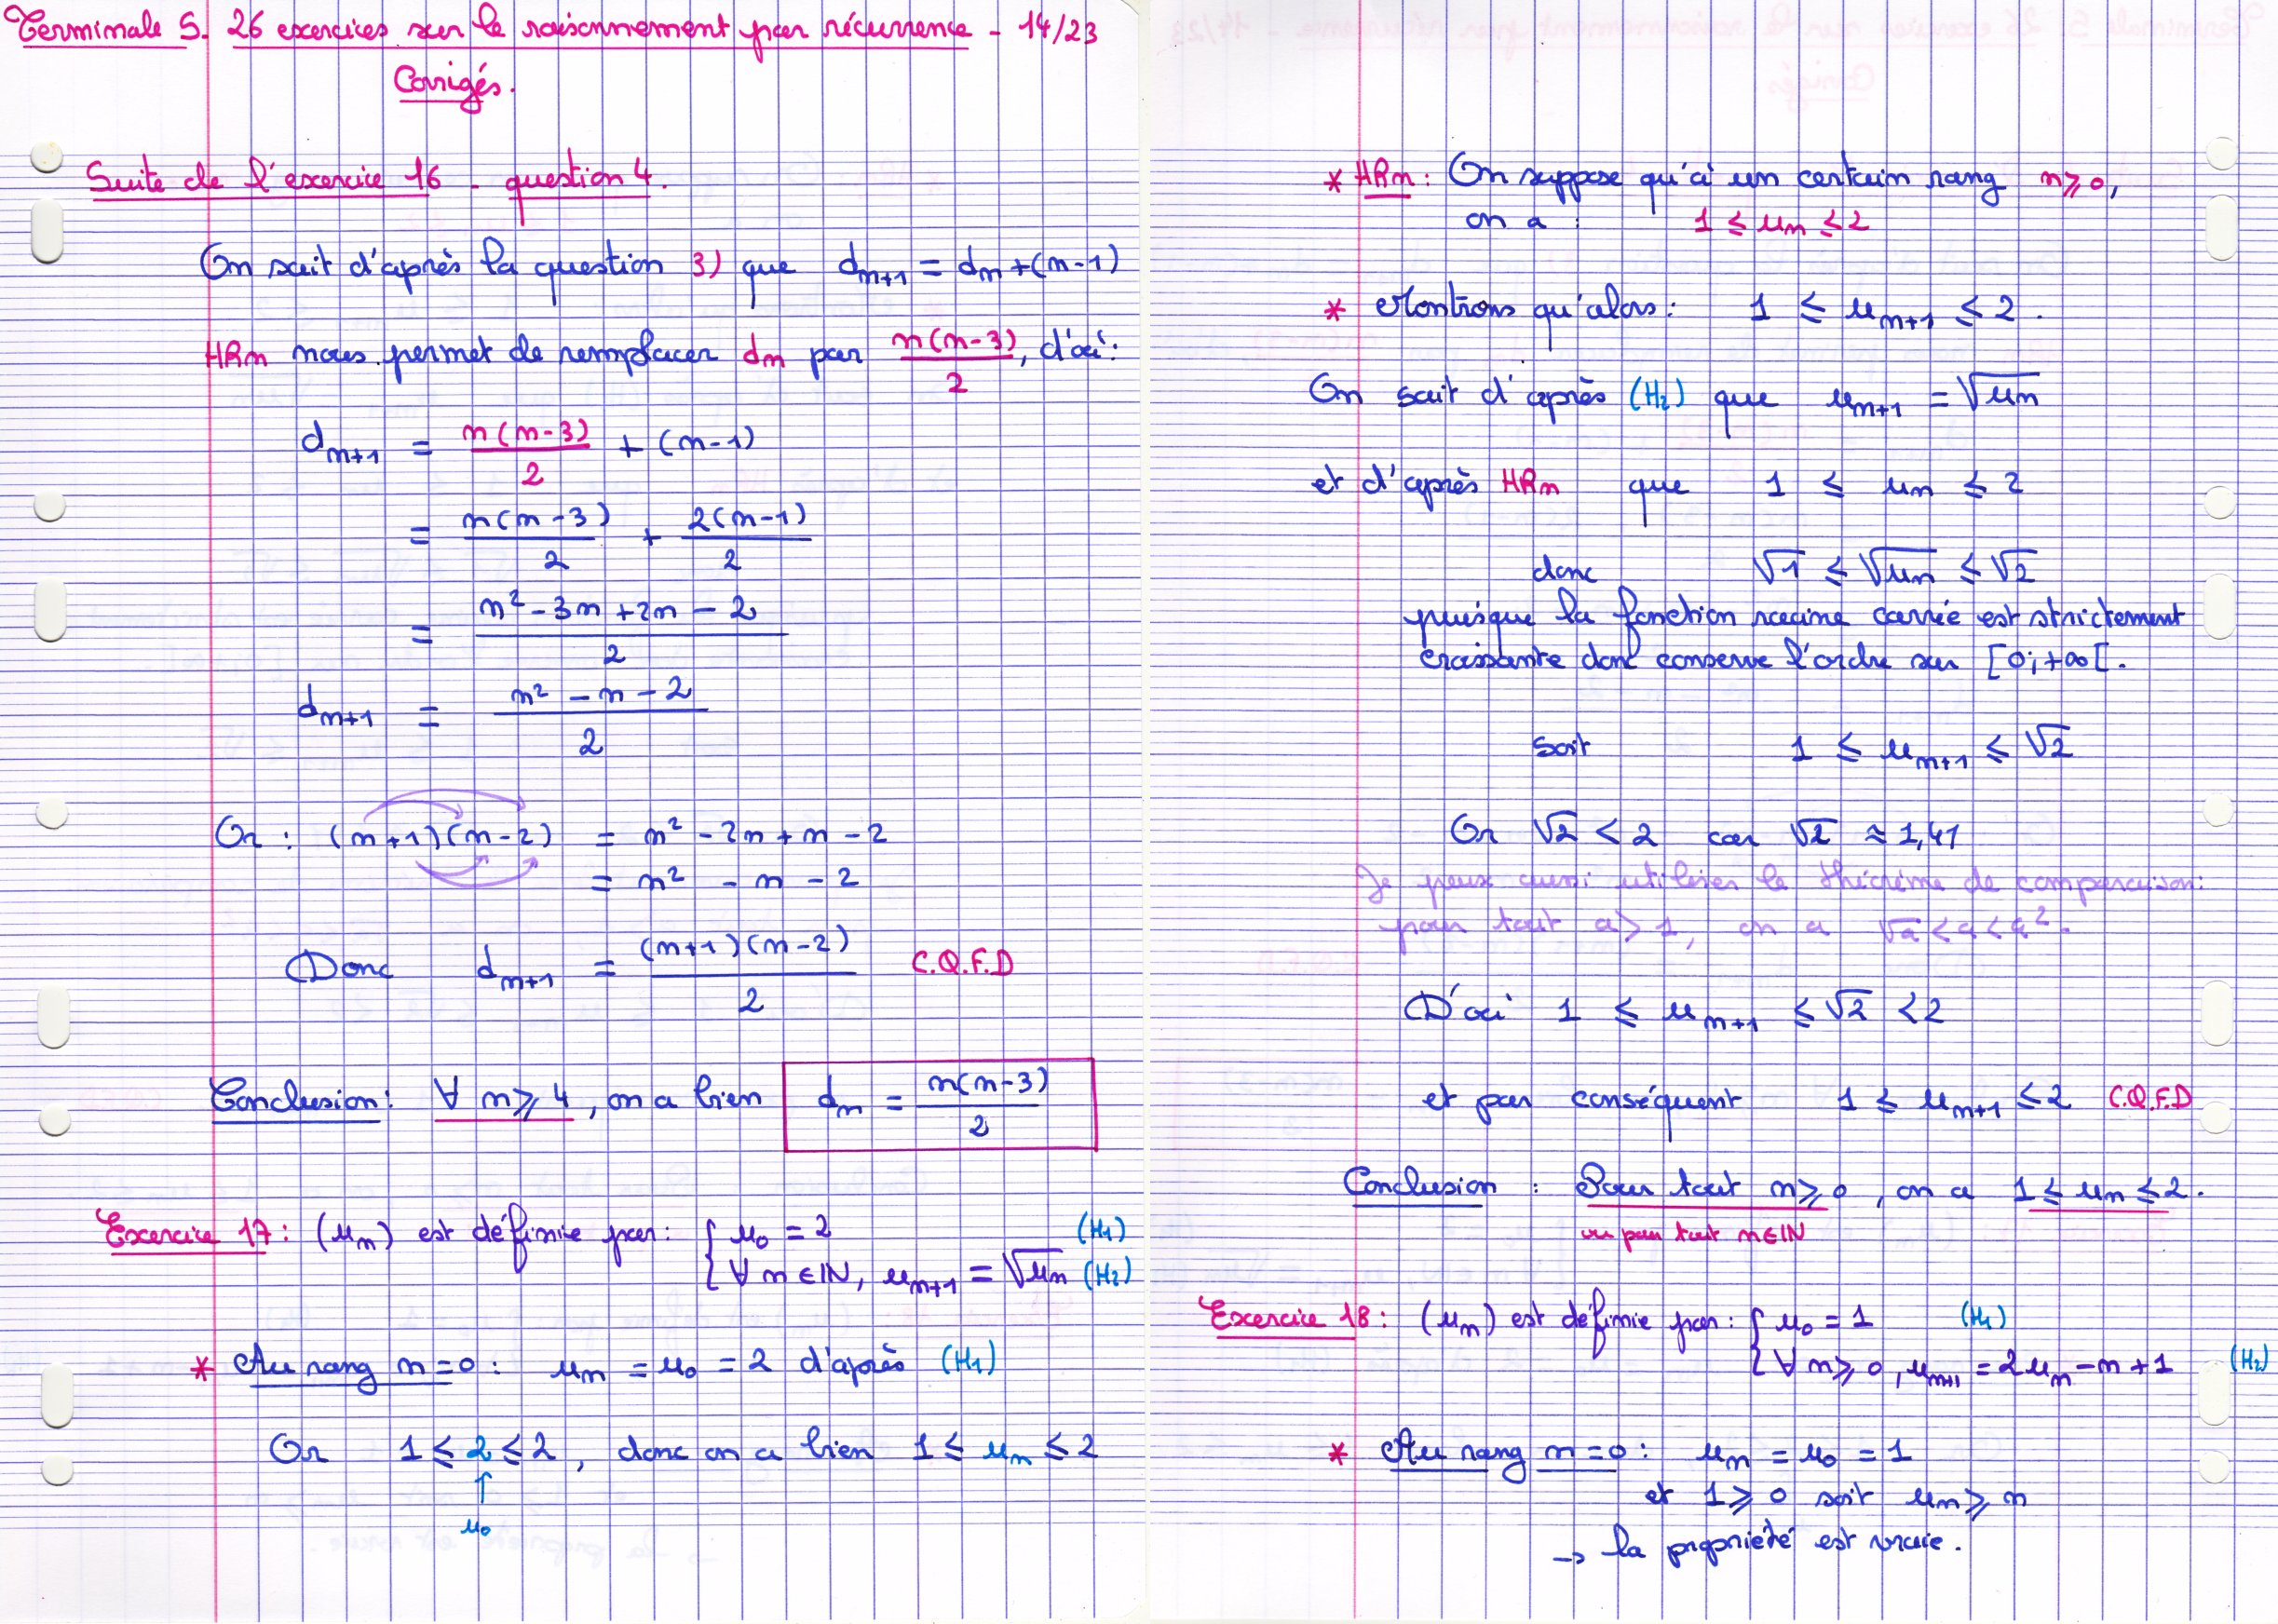 Terminale S. 26 exercices sur le raisonnement par récurrence - 14/23
Corrigés.
Suite de l'exercice 16 - question 4.
On sait d'après la question 3) que d_{n+1} = d_n + (n-1)
HRn nous permet de remplacer d_n par \frac{n(n-3)}{2}, d'où :
d_{n+1} = \frac{n(n-3)}{2} + (n-1)
= \frac{n(n-3)}{2} + \frac{2(n-1)}{2}
= \frac{n² - 3n + 2n - 2}{2}
d_{n+1} = \frac{n² - n - 2}{2}
Or : (n+1)(n-2) = n² - 2n + n - 2
= n² - n - 2
Donc d_{n+1} = \frac{(n+1)(n-2)}{2} C.Q.F.D
Conclusion : ∀ n ⩾ 4, on a bien d_n = \frac{n(n-3)}{2}
Exercice 17 : (u_n) est définie par : { u_0 = 2 (H1)
∀ n ∈ IN, u_{n+1} = √u_n (H2)
* Au rang n=0 : u_n = u_0 = 2 d'après (H1)
Or 1 ≤ 2 ≤ 2, donc on a bien 1 ≤ u_n ≤ 2
↑
u_0
* HRn : On suppose qu'à un certain rang n ⩾ 0,
on a : 1 ≤ u_n ≤ 2
* Montrons qu'alors : 1 ≤ u_{n+1} ≤ 2.
On sait d'après (H2) que u_{n+1} = √u_n
et d'après HRn que 1 ≤ u_n ≤ 2
donc √1 ≤ √u_n ≤ √2
puisque la fonction racine carrée est strictement
croissante donc conserve l'ordre sur [0;+∞[.
soit 1 ≤ u_{n+1} ≤ √2
Or √2 < 2 car √2 ≈ 1,41
Je peux aussi utiliser le théorème de comparaison:
pour tout a > 1, on a √a < a < a².
D'où 1 ≤ u_{n+1} ≤ √2 < 2
et par conséquent 1 ≤ u_{n+1} ≤ 2 C.Q.F.D
Conclusion : Pour tout n ⩾ 0, on a 1 ≤ u_n ≤ 2.
ou pour tout n ∈ IN
Exercice 18 : (u_n) est définie par : { u_0 = 1 (H1)
∀ n ⩾ 0, u_{n+1} = 2u_n - n + 1 (H2)
* Au rang n=0 : u_n = u_0 = 1
et 1 ⩾ 0 soit u_n ⩾ n
→ la propriété est vraie.